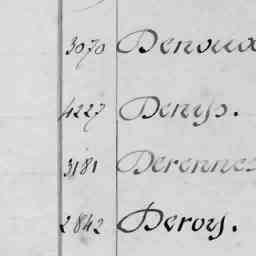 3070 Denoux
4227 Denys.
3181 Derennes
2842 Deroy.